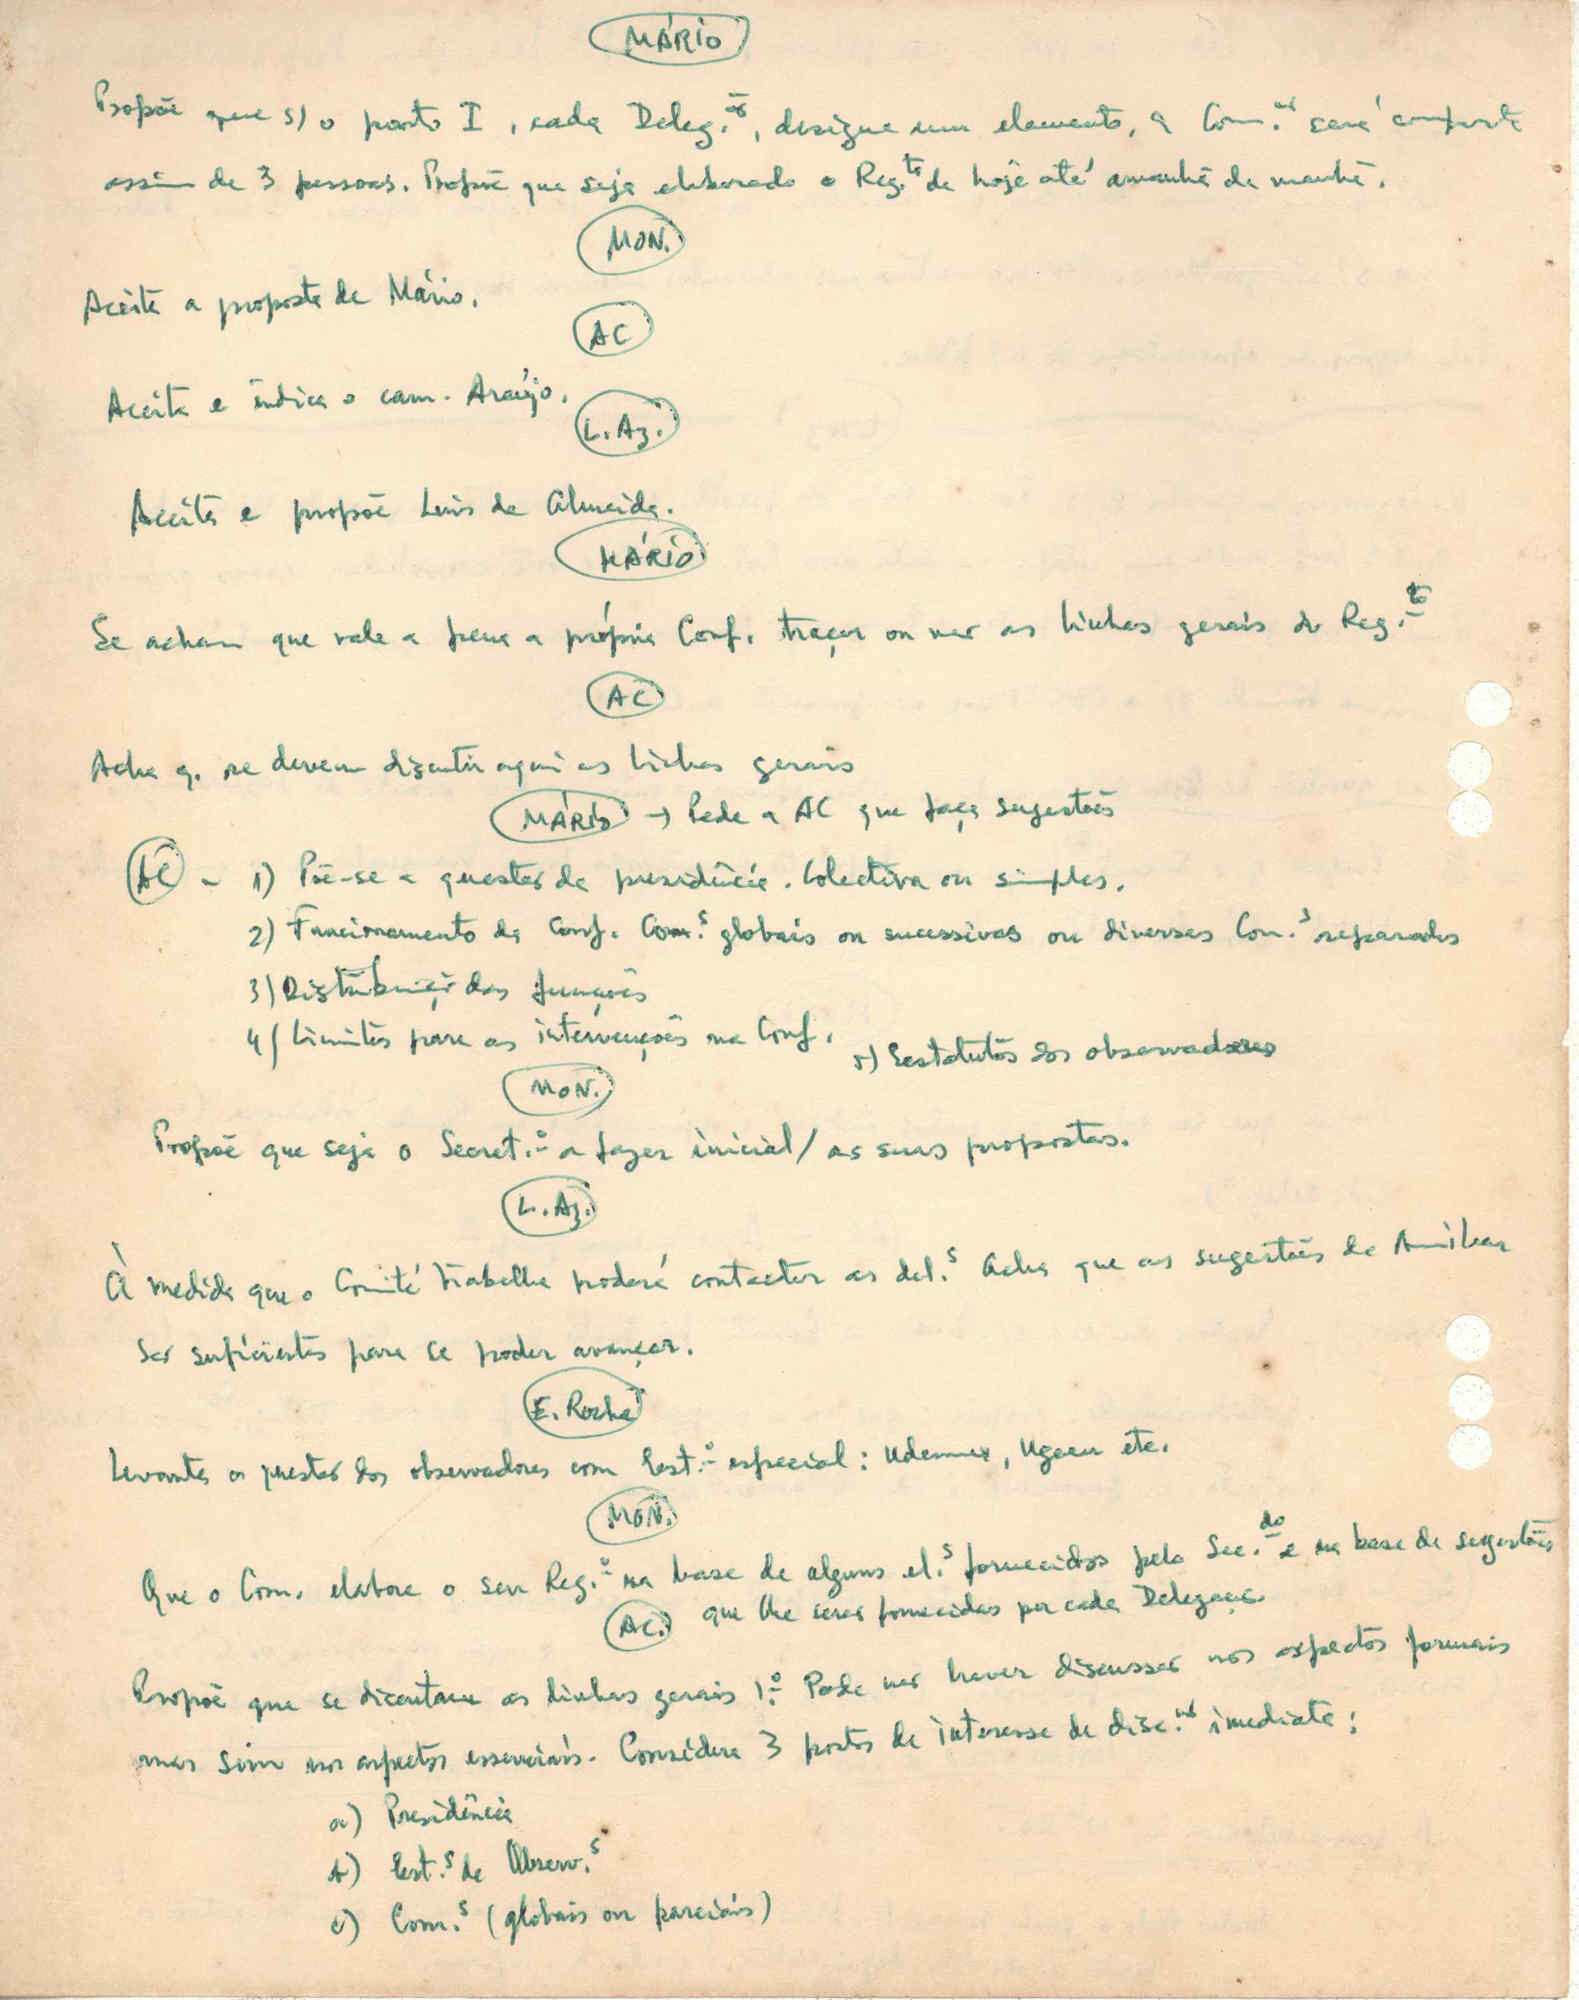 MÁRIO
Propõe que s) o ponto I, cada Deleg.ão, designe um elemento, a Com.ão será composta
assim de 3 pessoas. Propõe que seja elaborado o Reg.to de hoje até amanhã de manhã.
MON.
Aceita a proposta de Mário.
AC
Aceita e indica o cam. Araújo.
L. Az.
Aceita e propõe Luis de Almeida.
MÁRIO
Se acham que vale a pena a própria Conf. traçar ou ver as linhas gerais do Reg.to
AC
Acha q. se devem discutir aqui as linhas gerais
MÁRIO → Pede a AC que faça sugestões
AC - 1) Põe-se a questão da presidência. Colectiva ou simples.
2) Funcionamento da Conf. Com.s globais ou sucessivas ou diversas Com.s separadas
3) Distribuição das funções
4) Limites para as intervenções na Conf. 5) Estatutos dos observadores
MON.
Propõe que seja o Secret.o a fazer inicial/ as suas propostas.
L. Az.
À medida que o Comité trabalha poderá contactar as del.s Acha que as sugestões de Amilcar
são suficientes para se poder avançar.
E. Rocha
Levanta a questão dos observadores com Est.o especial: Udenamo, Ugean etc.
MON.
Que o Com. elabore o seu Reg.o na base de alguns el.s fornecidos pelo Sec.do e na base de sugestões
que lhe serão fornecidas por cada Delegação.
AC.
Propõe que se discutam as linhas gerais 1.o Pode não haver discussão nos aspectos formais
mas sim nos aspectos essenciais. Considera 3 pontos de interesse de disc.ão imediata:
a) Presidência
b) Est.s de Observ.s
c) Com.s (globais ou parciais)